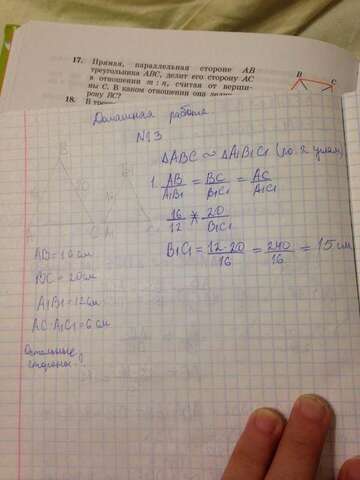 17. Прямая, параллельная стороне AB
треугольника ABC, делит его сторону AC
в отношении m : n, считая от верши-
ны C. В каком отношении она
рону BC?
18.
B
C
Домашняя работа
№13
△ABC ∾ △A₁B₁C₁ (по 2 углам)
1. AB/A₁B₁ = BC/B₁C₁ = AC/A₁C₁
16/12 * 20/B₁C₁
B₁C₁ = 12·20/16 = 240/16 = 15 см
AB = 16 см
BC = 20 см
A₁B₁ = 12 см
AC-A₁C₁ = 6 см
Остальные
стороны